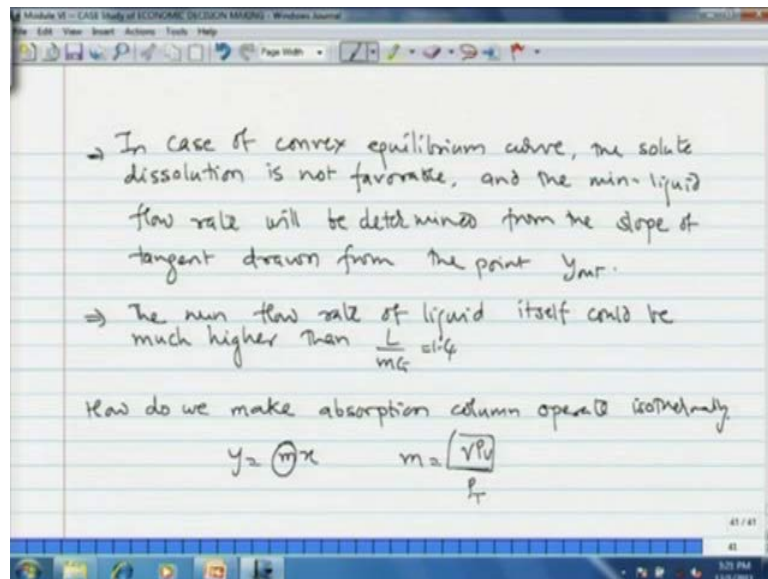 Module VI - CASE Study of ECONOMIC DECISION MAKING - Windows Journal
File Edit View Insert Actions Tools Help
Page Width
→ In case of convex equilibrium curve, the solute
dissolution is not favorable, and the min- liquid
flow rate will be determined from the slope of
tangent drawn from the point
⇒ The min flow rate of liquid itself could be
much higher than L/mG = 1.4
How do we make absorption column operate isothermally
y = mx m = γPv/PT
41 / 41
41
3:21 PM